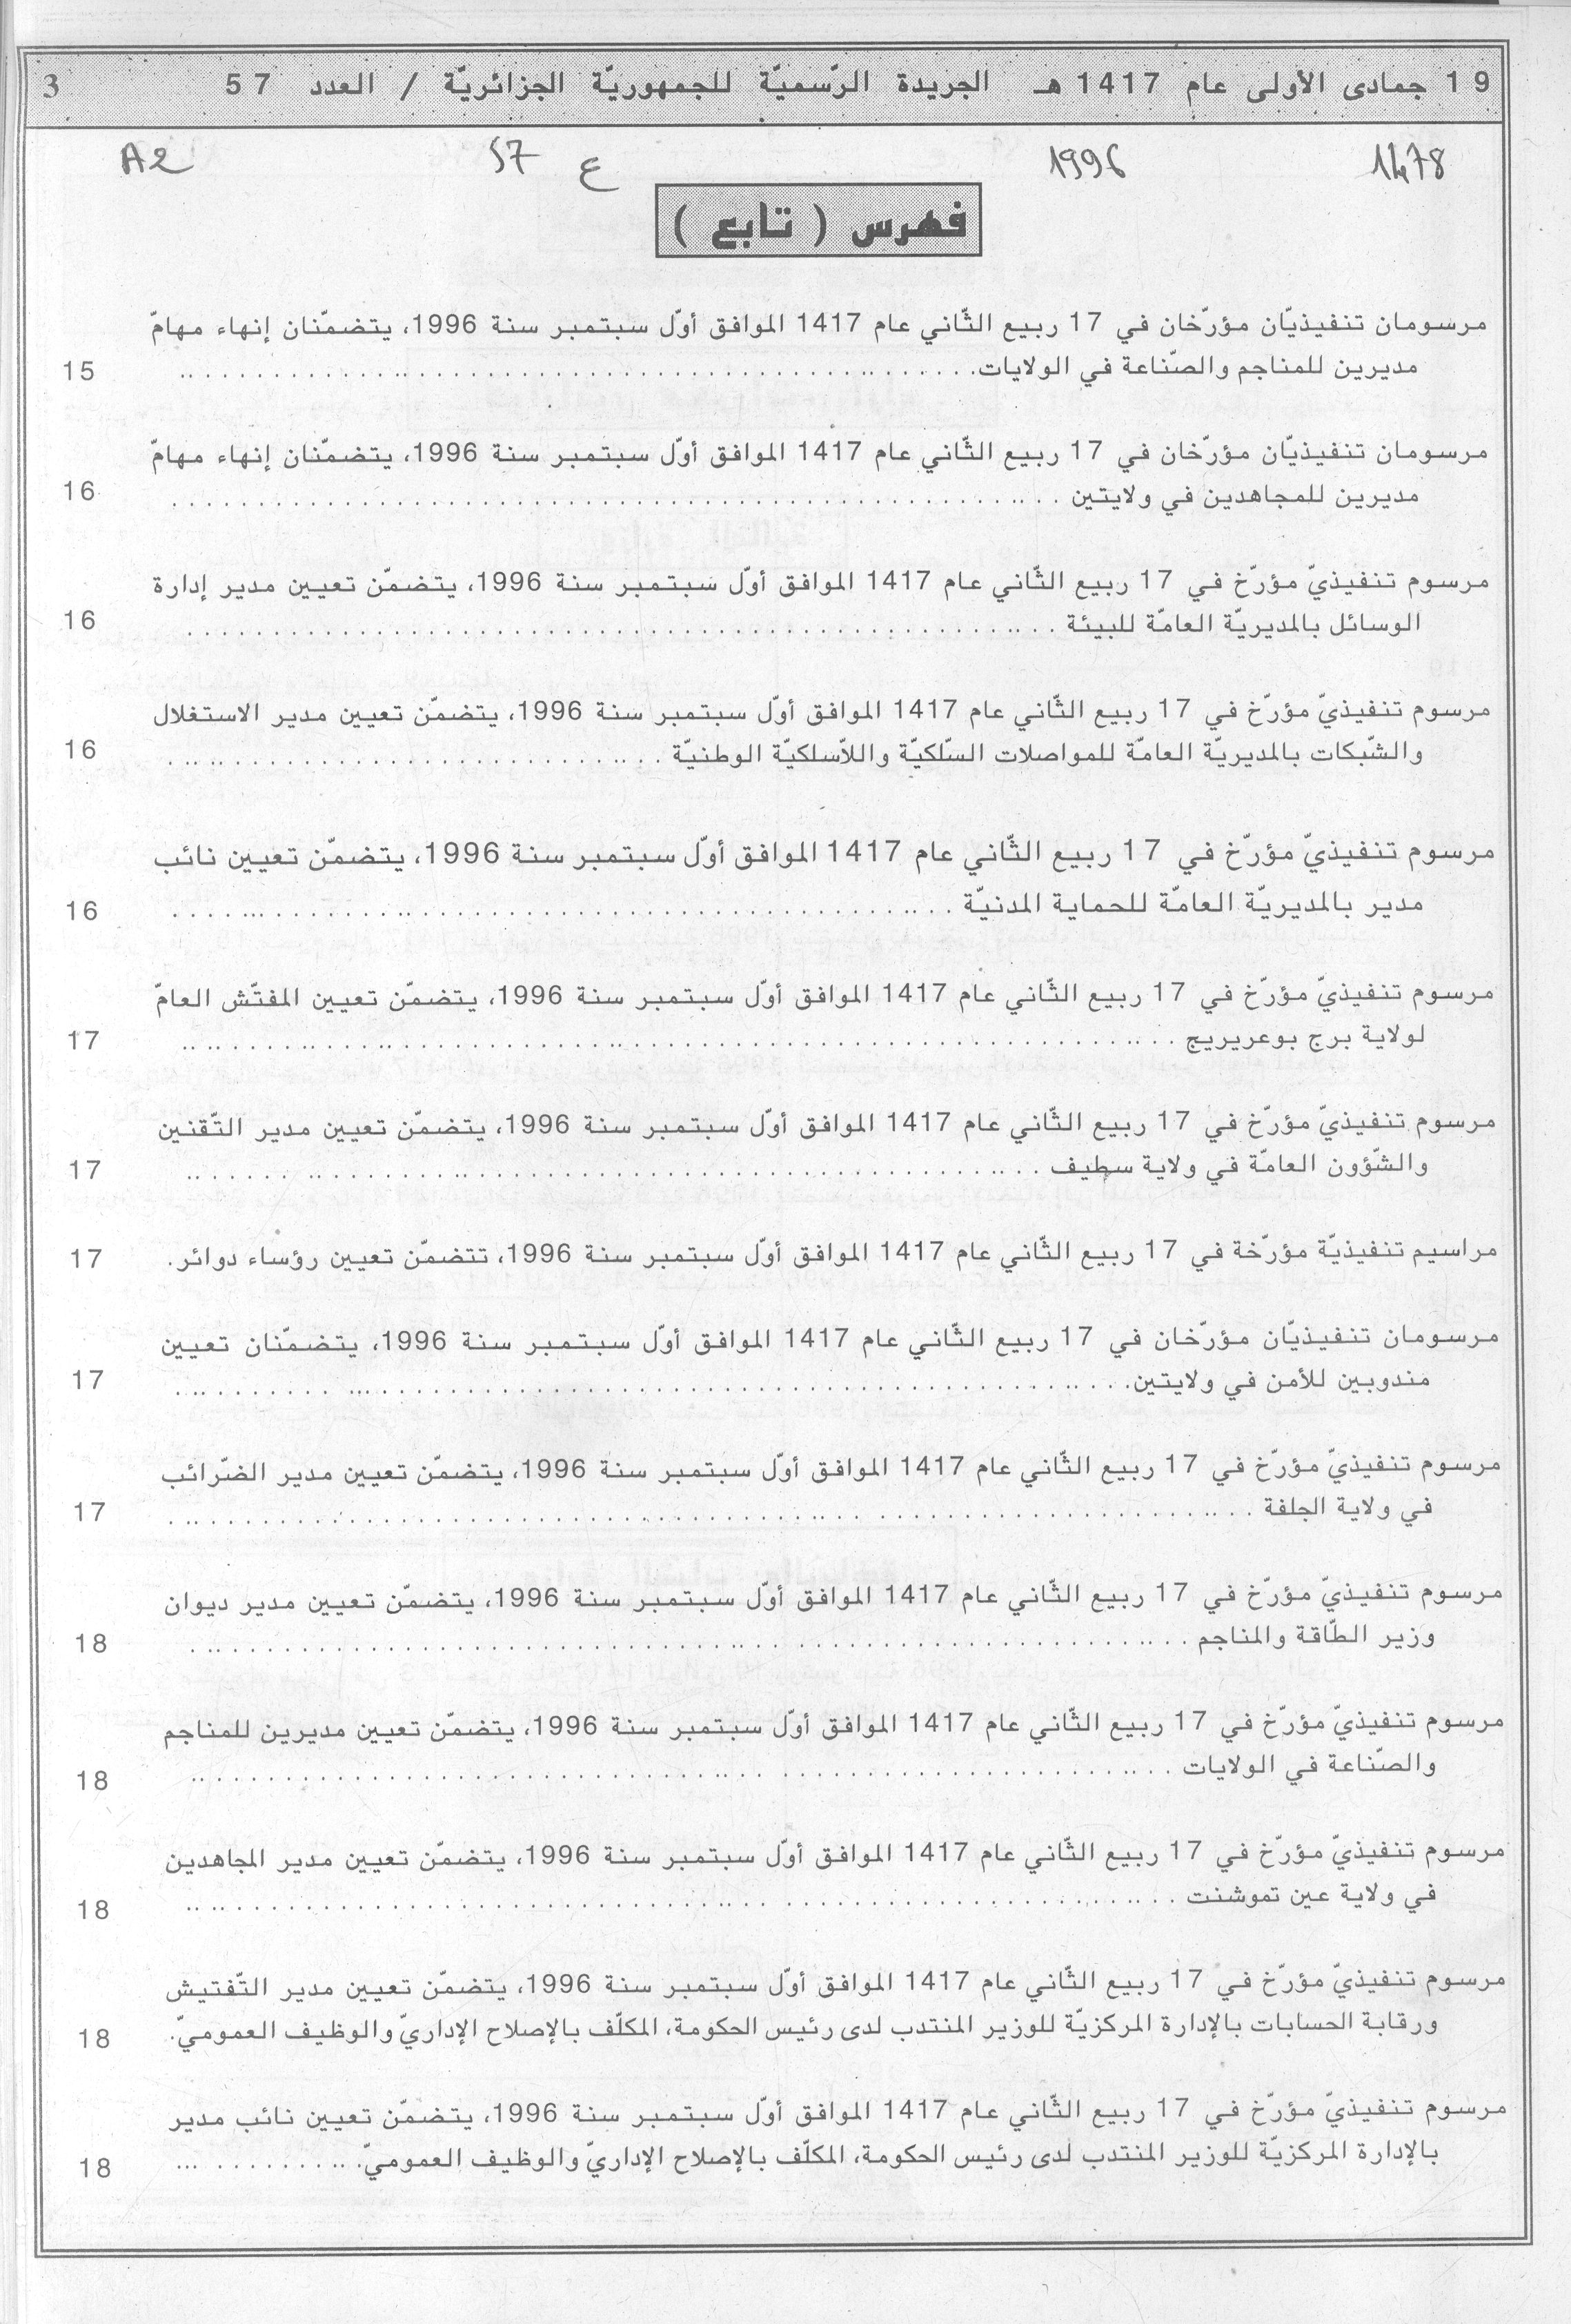 19 جمادى الأولى عام 1417 هـ الجريدة الرّسميّة للجمهوريّة الجزائريّة / العدد 57 3
1478 1996 ع 57 A2
فهرس ( تابع )
مرسومان تنفيذيّان مؤرّخان في 17 ربيع الثّاني عام 1417 الموافق أوّل سبتمبر سنة 1996، يتضمّنان إنهاء مهامّ
مديرين للمناجم والصّناعة في الولايات. 15
مرسومان تنفيذيّان مؤرّخان في 17 ربيع الثّاني عام 1417 الموافق أوّل سبتمبر سنة 1996، يتضمّنان إنهاء مهامّ
مديرين للمجاهدين في ولايتين 16
مرسوم تنفيذيّ مؤرّخ في 17 ربيع الثّاني عام 1417 الموافق أوّل سبتمبر سنة 1996، يتضمّن تعيين مدير إدارة
الوسائل بالمديريّة العامّة للبيئة 16
مرسوم تنفيذيّ مؤرّخ في 17 ربيع الثّاني عام 1417 الموافق أوّل سبتمبر سنة 1996، يتضمّن تعيين مدير الاستغلال
والشّبكات بالمديريّة العامّة للمواصلات السّلكيّة واللاّسلكيّة الوطنيّة 16
مرسوم تنفيذيّ مؤرّخ في 17 ربيع الثّاني عام 1417 الموافق أوّل سبتمبر سنة 1996، يتضمّن تعيين نائب
مدير بالمديريّة العامّة للحماية المدنيّة 16
مرسوم تنفيذيّ مؤرّخ في 17 ربيع الثّاني عام 1417 الموافق أوّل سبتمبر سنة 1996، يتضمّن تعيين المفتّش العامّ
لولاية برج بوعريريج 17
مرسوم تنفيذيّ مؤرّخ في 17 ربيع الثّاني عام 1417 الموافق أوّل سبتمبر سنة 1996، يتضمّن تعيين مدير التّقنين
والشّؤون العامّة في ولاية سطيف 17
مراسيم تنفيذيّة مؤرّخة في 17 ربيع الثّاني عام 1417 الموافق أوّل سبتمبر سنة 1996، تتضمّن تعيين رؤساء دوائر. 17
مرسومان تنفيذيّان مؤرّخان في 17 ربيع الثّاني عام 1417 الموافق أوّل سبتمبر سنة 1996، يتضمّنان تعيين
مندوبين للأمن في ولايتين. 17
مرسوم تنفيذيّ مؤرّخ في 17 ربيع الثّاني عام 1417 الموافق أوّل سبتمبر سنة 1996، يتضمّن تعيين مدير الضّرائب
في ولاية الجلفة 17
مرسوم تنفيذيّ مؤرّخ في 17 ربيع الثّاني عام 1417 الموافق أوّل سبتمبر سنة 1996، يتضمّن تعيين مدير ديوان
وزير الطّاقة والمناجم 18
مرسوم تنفيذيّ مؤرّخ في 17 ربيع الثّاني عام 1417 الموافق أوّل سبتمبر سنة 1996، يتضمّن تعيين مديرين للمناجم
والصّناعة في الولايات 18
مرسوم تنفيذيّ مؤرّخ في 17 ربيع الثّاني عام 1417 الموافق أوّل سبتمبر سنة 1996، يتضمّن تعيين مدير المجاهدين
في ولاية عين تموشنت 18
مرسوم تنفيذيّ مؤرّخ في 17 ربيع الثّاني عام 1417 الموافق أوّل سبتمبر سنة 1996، يتضمّن تعيين مدير التّفتيش
ورقابة الحسابات بالإدارة المركزيّة للوزير المنتدب لدى رئيس الحكومة، المكلّف بالإصلاح الإداريّ والوظيف العموميّ. 18
مرسوم تنفيذيّ مؤرّخ في 17 ربيع الثّاني عام 1417 الموافق أوّل سبتمبر سنة 1996، يتضمّن تعيين نائب مدير
بالإدارة المركزيّة للوزير المنتدب لدى رئيس الحكومة، المكلّف بالإصلاح الإداريّ والوظيف العموميّ. 18